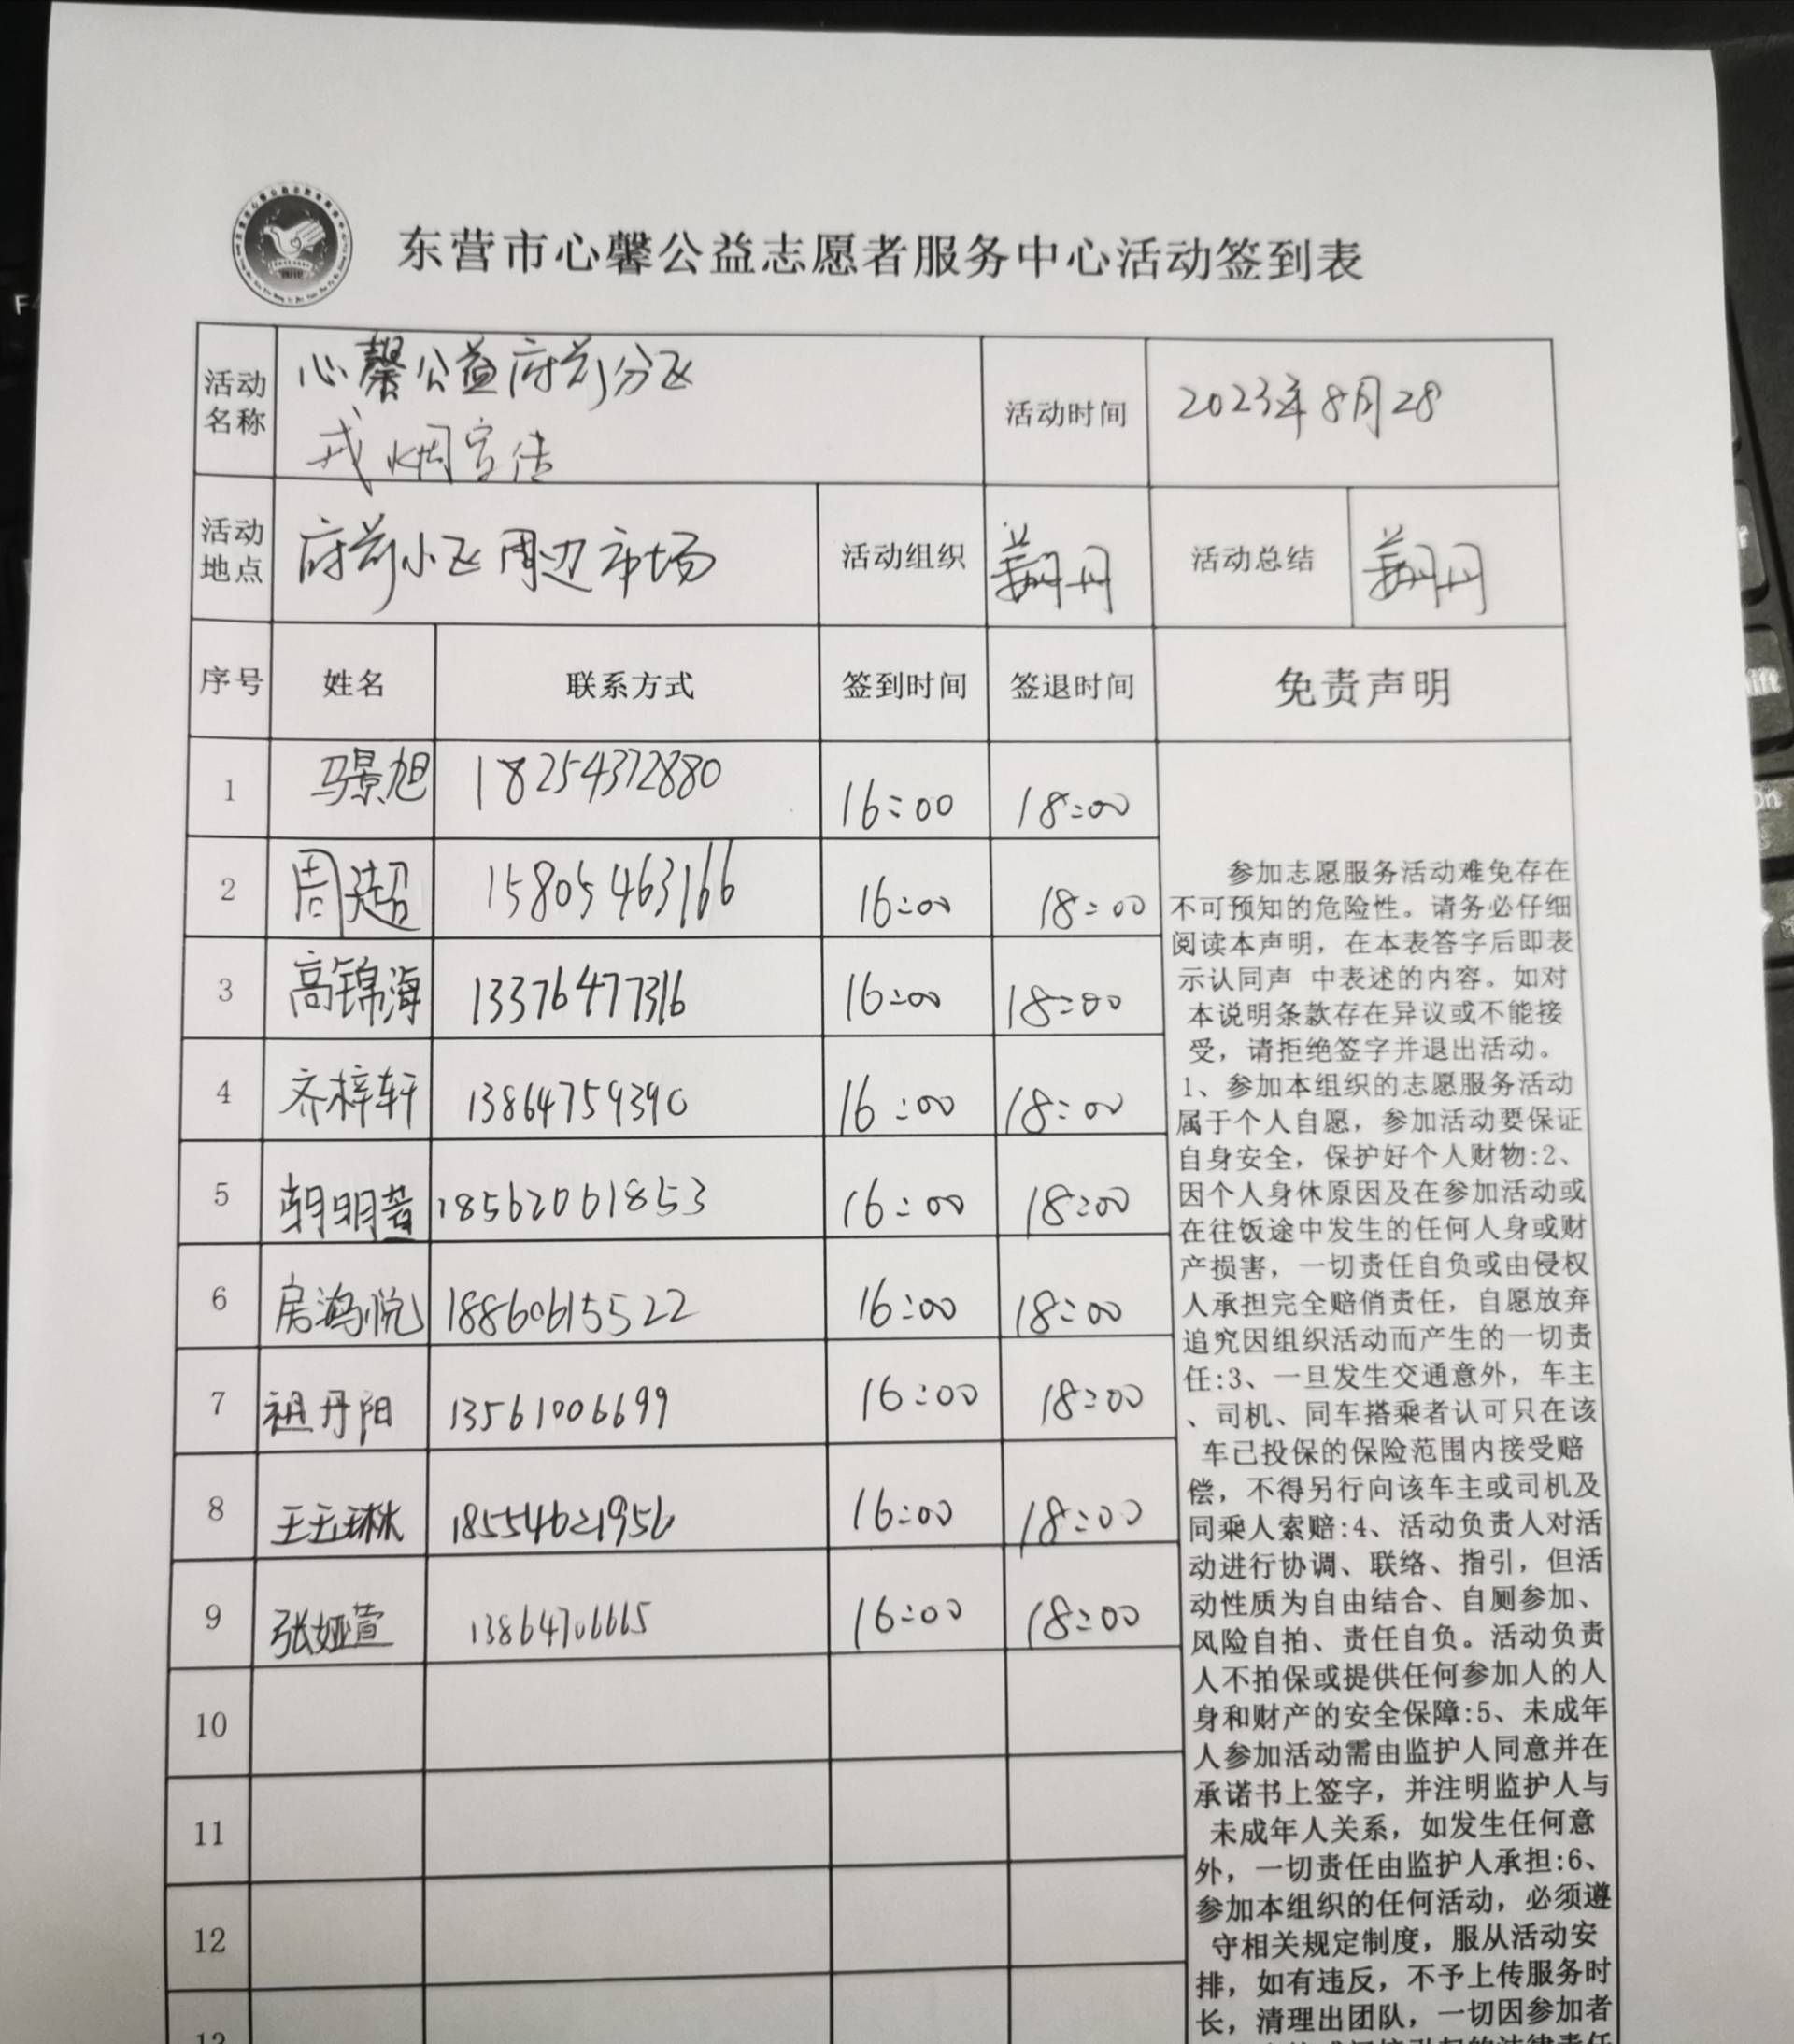 东营市心馨公益志愿者服务中心活动签到表
活动名称
心馨公益府前分区
戒烟宣传
活动时间
2023年8月28
活动地点
府前小区周边市场
活动组织
姜丹丹
活动总结
姜丹丹
序号 姓名 联系方式 签到时间 签退时间 免责声明
1 马景旭 18254372880 16:00 18:00
2 周超 15805463166 16:00 18:00
3 高锦海 13376477316 16:00 18:00
4 齐梓轩 13864759390 16:00 18:00
5 明 18562061853 16:00 18:00
6 房鸿悦 18860615522 16:00 18:00
7 祖丹阳 13561006699 16:00 18:00
8 王玉琳 18554621956 16:00 18:00
9 张娅萱 13864706665 16:00 18:00
10
11
12
13
参加志愿服务活动难免存在
不可预知的危险性。请务必仔细
阅读本声明，在本表答字后即表
示认同声 中表述的内容。如对
本说明条款存在异议或不能接
受，请拒绝签字并退出活动。
1、参加本组织的志愿服务活动
属于个人自愿，参加活动要保证
自身安全，保护好个人财物:2、
因个人身休原因及在参加活动或
在往饭途中发生的任何人身或财
产损害，一切责任自负或由侵权
人承担完全赔俏责任，自愿放弃
追究因组织活动而产生的一切责
任:3、一旦发生交通意外，车主
、司机、同车搭乘者认可只在该
车已投保的保险范围内接受赔
偿，不得另行向该车主或司机及
同乘人索赔:4、活动负责人对活
动进行协调、联络、指引，但活
动性质为自由结合、自厕参加、
风险自拍、责任自负。活动负责
人不拍保或提供任何参加人的人
身和财产的安全保障:5、未成年
人参加活动需由监护人同意并在
承诺书上签字，并注明监护人与
未成年人关系，如发生任何意
外，一切责任由监护人承担:6、
参加本组织的任何活动，必须遵
守相关规定制度，服从活动安
排，如有违反，不予上传服务时
长，清理出团队，一切因参加者